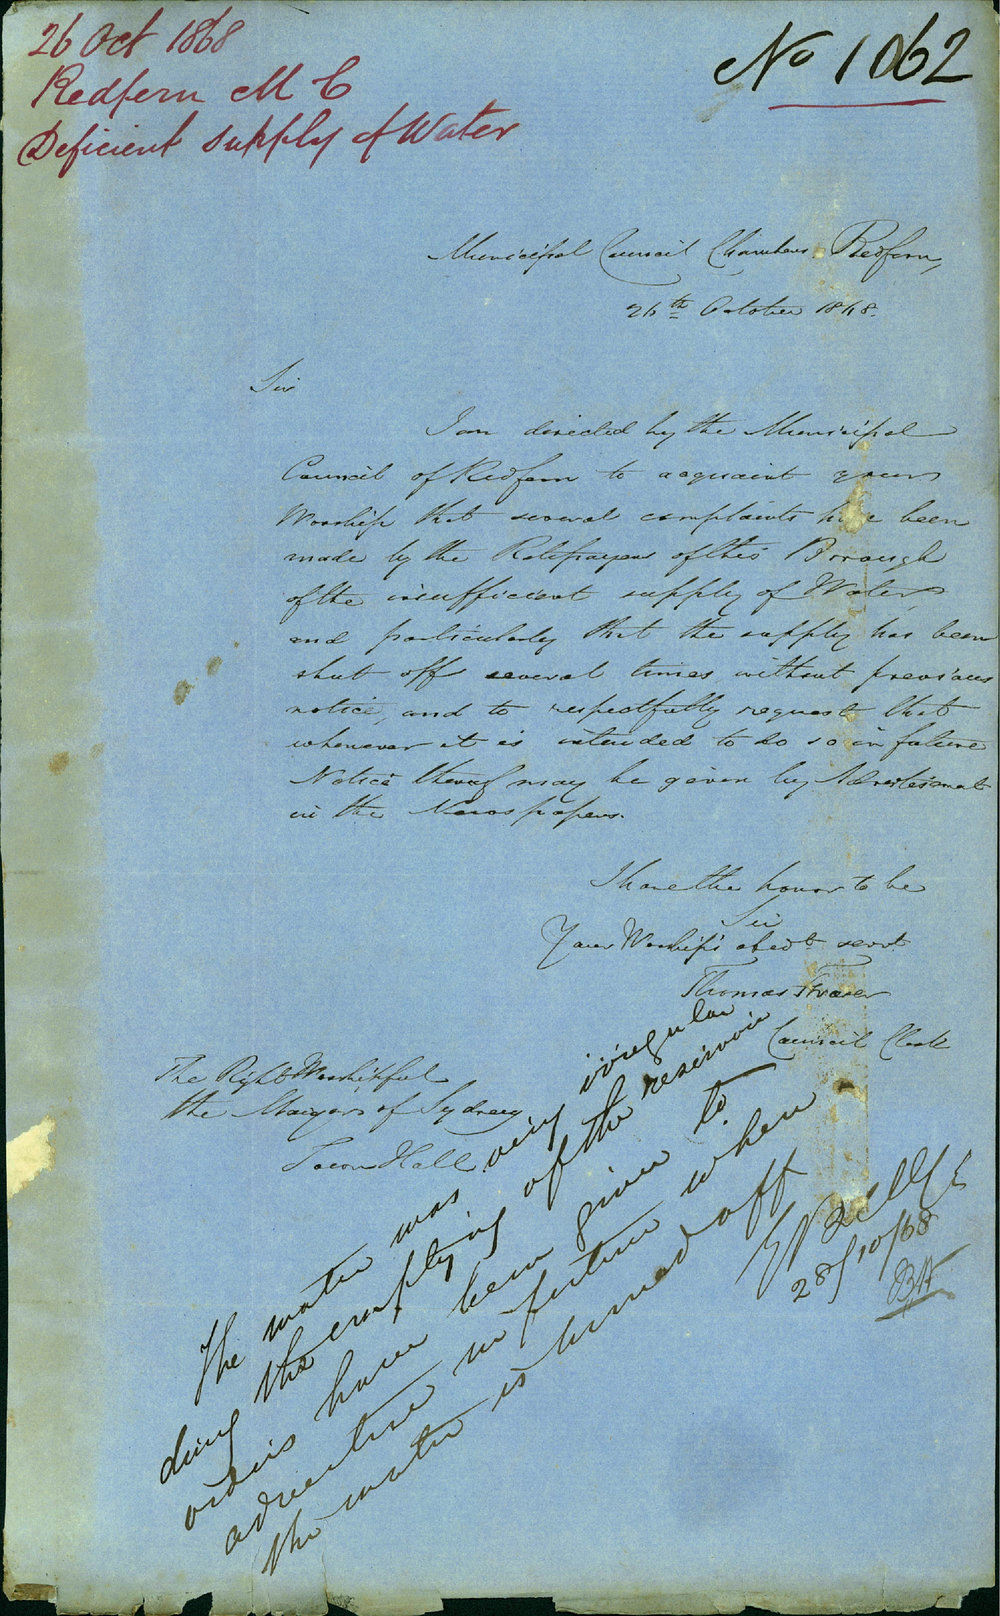 26 Oct 1868
Redfern M C
Deficient supply of Water
No 1062
Municipal Council Chambers. Redfern,
26th October 1868.
Sir
I am directed by the Municipal
Council of Redfern to acquaint your
Worship that several complaints have been
made by the Ratepayers of this Borough
of the insufficient supply of Water,
and particularly that the supply has been
shut off several times without previous
notice, and to respectfully request that
whenever it is intended to do so in future
Notice thereof may be given by Advertisement
in the Newspapers.
I have the honor to be
Sir
Your Worship's obedt servt
Thomas Fraser
Council Clerk
The Right Worshipful
the Mayor of Sydney
Town Hall
The water was very irregular
during the emptying of the reservoir
orders have been given to
advertise in future when
the water is turned off
E Bell C E
28/10/68